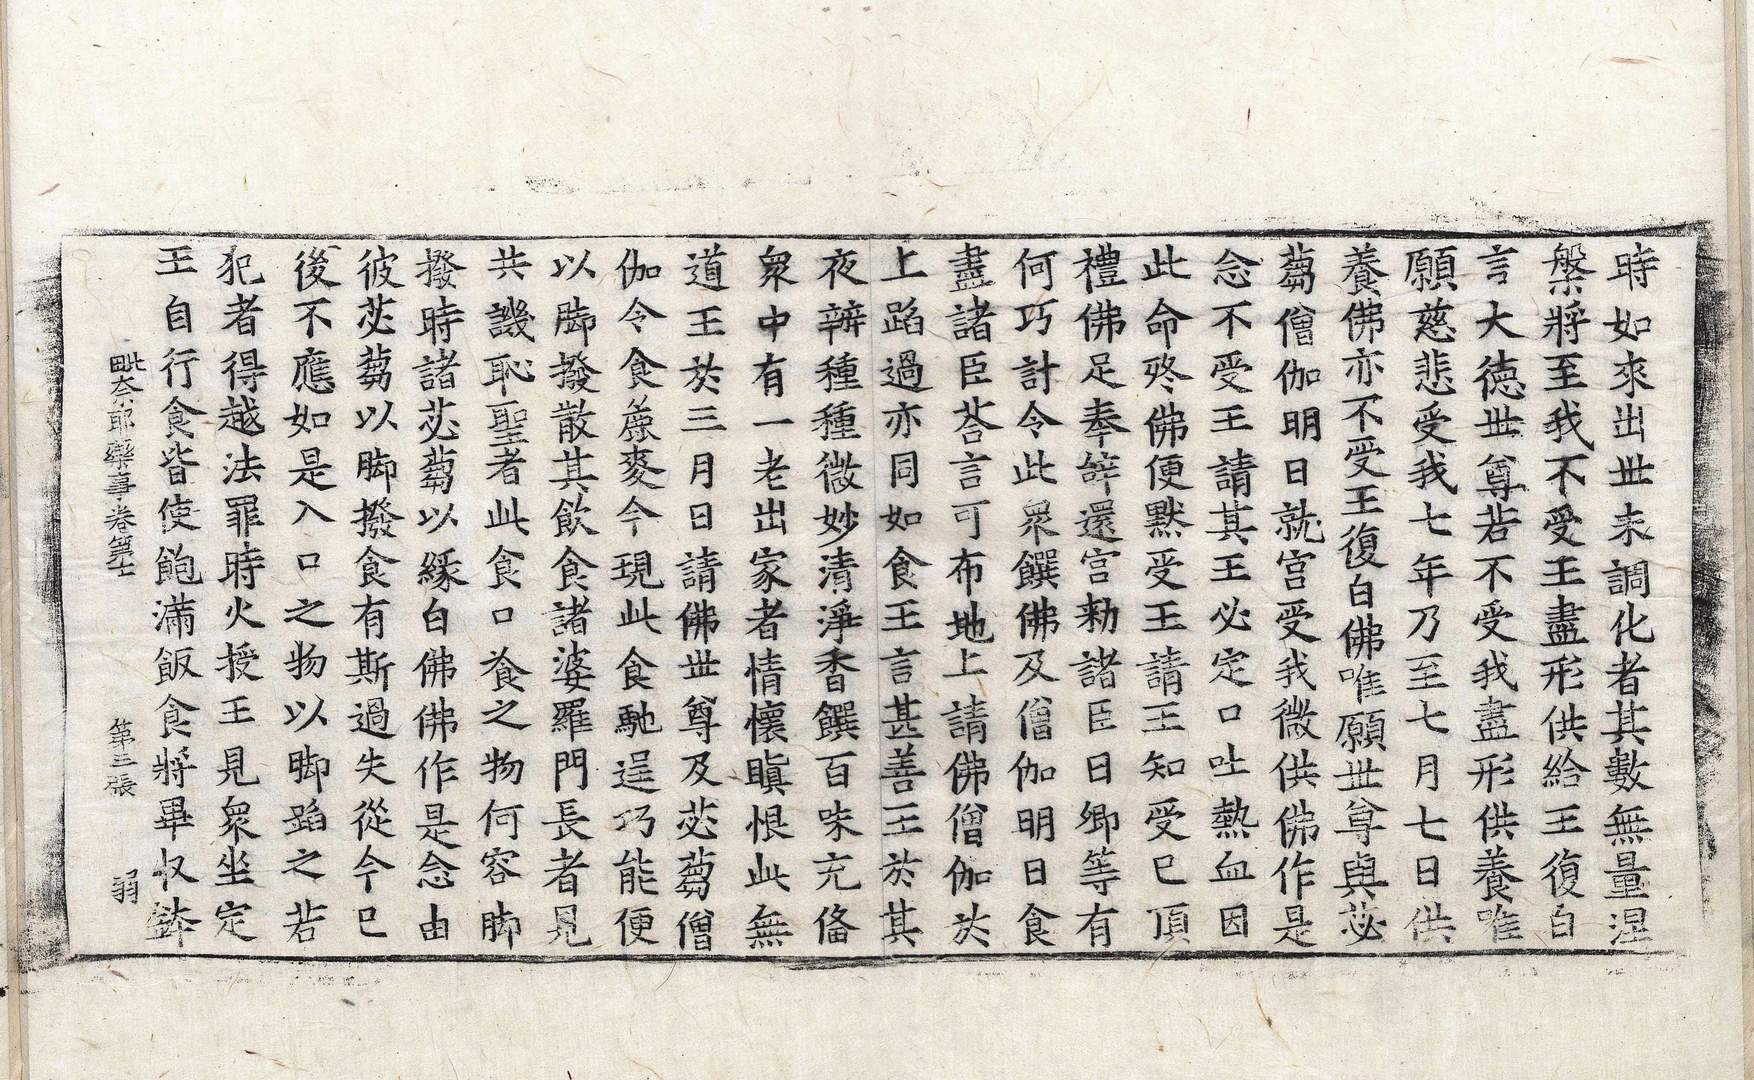 時如來出世未調化者其數無量涅
槃將至我不受王盡形供給王復白
言大德世尊若不受我盡形供養唯
願慈悲受我七年乃至七月七日供
養佛亦不受王復白佛唯願世尊與苾
蒭僧伽明日就宮受我微供佛作是
念不受王請其王必定口吐熱血因
此命終佛便默受王請王知受已頂
禮佛足奉辭還宮勑諸臣曰卿等有
何巧計令此衆饌佛及僧伽明日食
盡諸臣荅言可布地上請佛僧伽於
上蹈過亦同如食王言甚善王於其
夜辦種種微妙清淨香饌百味充俻
衆中有一老出家者情懷瞋恨此無
道王於三月日請佛世尊及苾蒭僧
伽令食麁麥今現此食馳逞巧能便
以脚撥散其飲食諸婆羅門長者見
共譏恥聖者此食口飡之物何容脚
撥時諸苾蒭以緣白佛佛作是念由
彼苾蒭以脚撥食有斯過失從今已
後不應如是入口之物以脚蹈之若
犯者得越法罪時火授王見衆坐定
王自行食皆使飽滿飯食將畢收鉢
毗奈耶藥事卷第七 第三張 弱